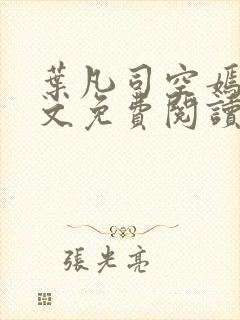 葉凡司空嫣
文免費閱讀
張光亮